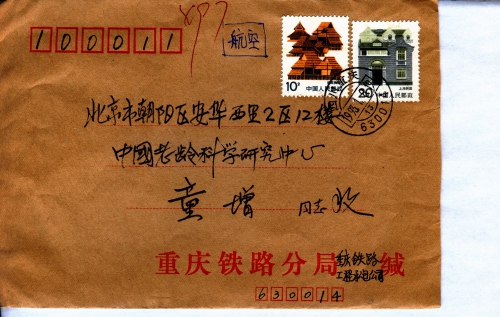 100011
航空
10分
中国人民邮政
20分
中国人民邮政
上海民居
重庆
630014
北京市朝阳区安华西里2区12楼
中国老龄科学研究中心
童增 同志 收
重庆铁路分局 缄
重庆铁路
工程承包公司
630014